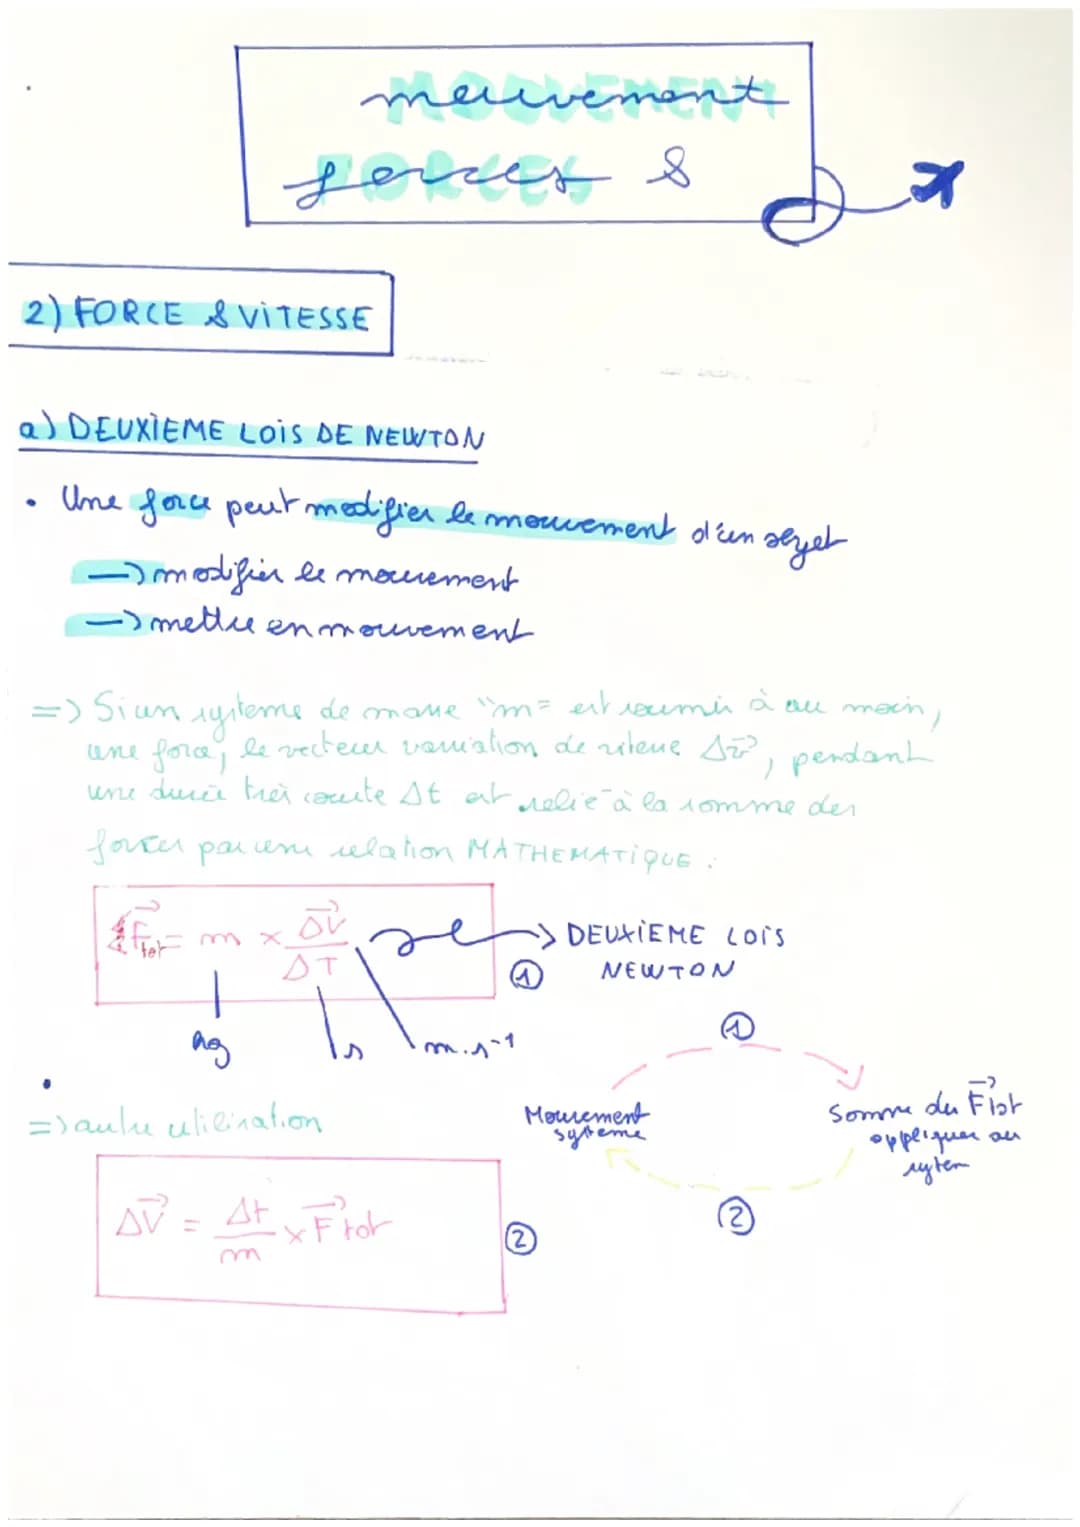 mouvement
forces &
2) FORCE & ViTESSE
a) DEUXIEME LOiS DE NEWTON
• Une force peut modifier le mouvement d'un objet
→ modifier le mouvement
→ mettre en mouvement
=> Si un systeme de masse "m" est soumis à au moin,
une force, le vecteur variation de vitesse Δv⃗, pendant
une durée très courte Δt est relié à la somme des
forces par une relation MATHEMATiQUE :
ΣF⃗tot = m × ΔV⃗/ΔT → DEUXiEME LOiS
① NEWTON
kg s m.s⁻¹
①
=> autre utilisation
Mouvement système
Somme des F⃗tot
appliquer au
system
ΔV⃗ = Δt/m × F⃗tot ②
②